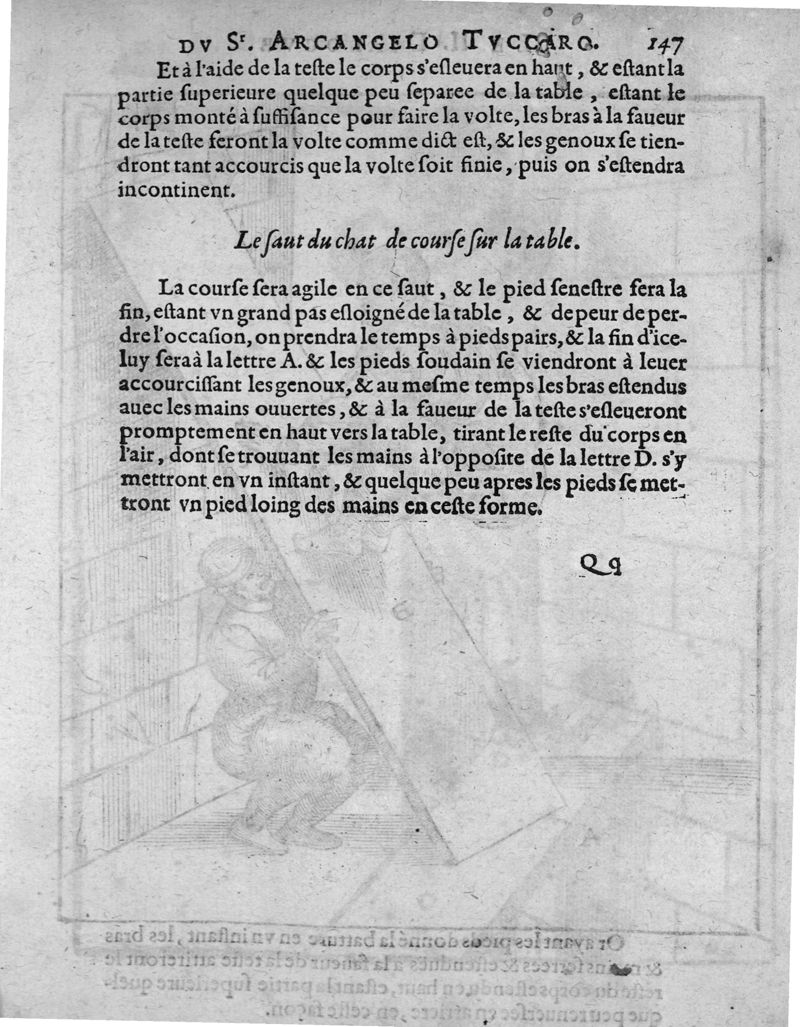 DV Sr. ARCANGELO TVCCARO. 147
Et à l'aide de la teste le corps s'esleuera en haut, & estant la
partie superieure quelque peu separee de la table, estant le
corps monté à suffisance pour faire la volte, les bras à la faueur
de la teste feront la volte comme dict est, & les genoux se tien-
dront tant accourcis que la volte soit finie, puis on s'estendra
incontinent.
Le saut du chat de course sur la table.
La course sera agile en ce saut, & le pied senestre fera la
fin, estant vn grand pas esloigné de la table, & de peur de per-
dre l'occasion, on prendra le temps à pieds pairs, & la fin d'ice-
luy sera à la lettre A. & les pieds soudain se viendront à leuer
accourcissant les genoux, & au mesme temps les bras estendus
auec les mains ouuertes, & à la faueur de la teste s'esleueront
promptement en haut vers la table, tirant le reste du corps en
l'air, dont se trouuant les mains à l'opposite de la lettre D. s'y
mettront en vn instant, & quelque peu apres les pieds se met-
tront vn pied loing des mains en ceste forme.
Qq